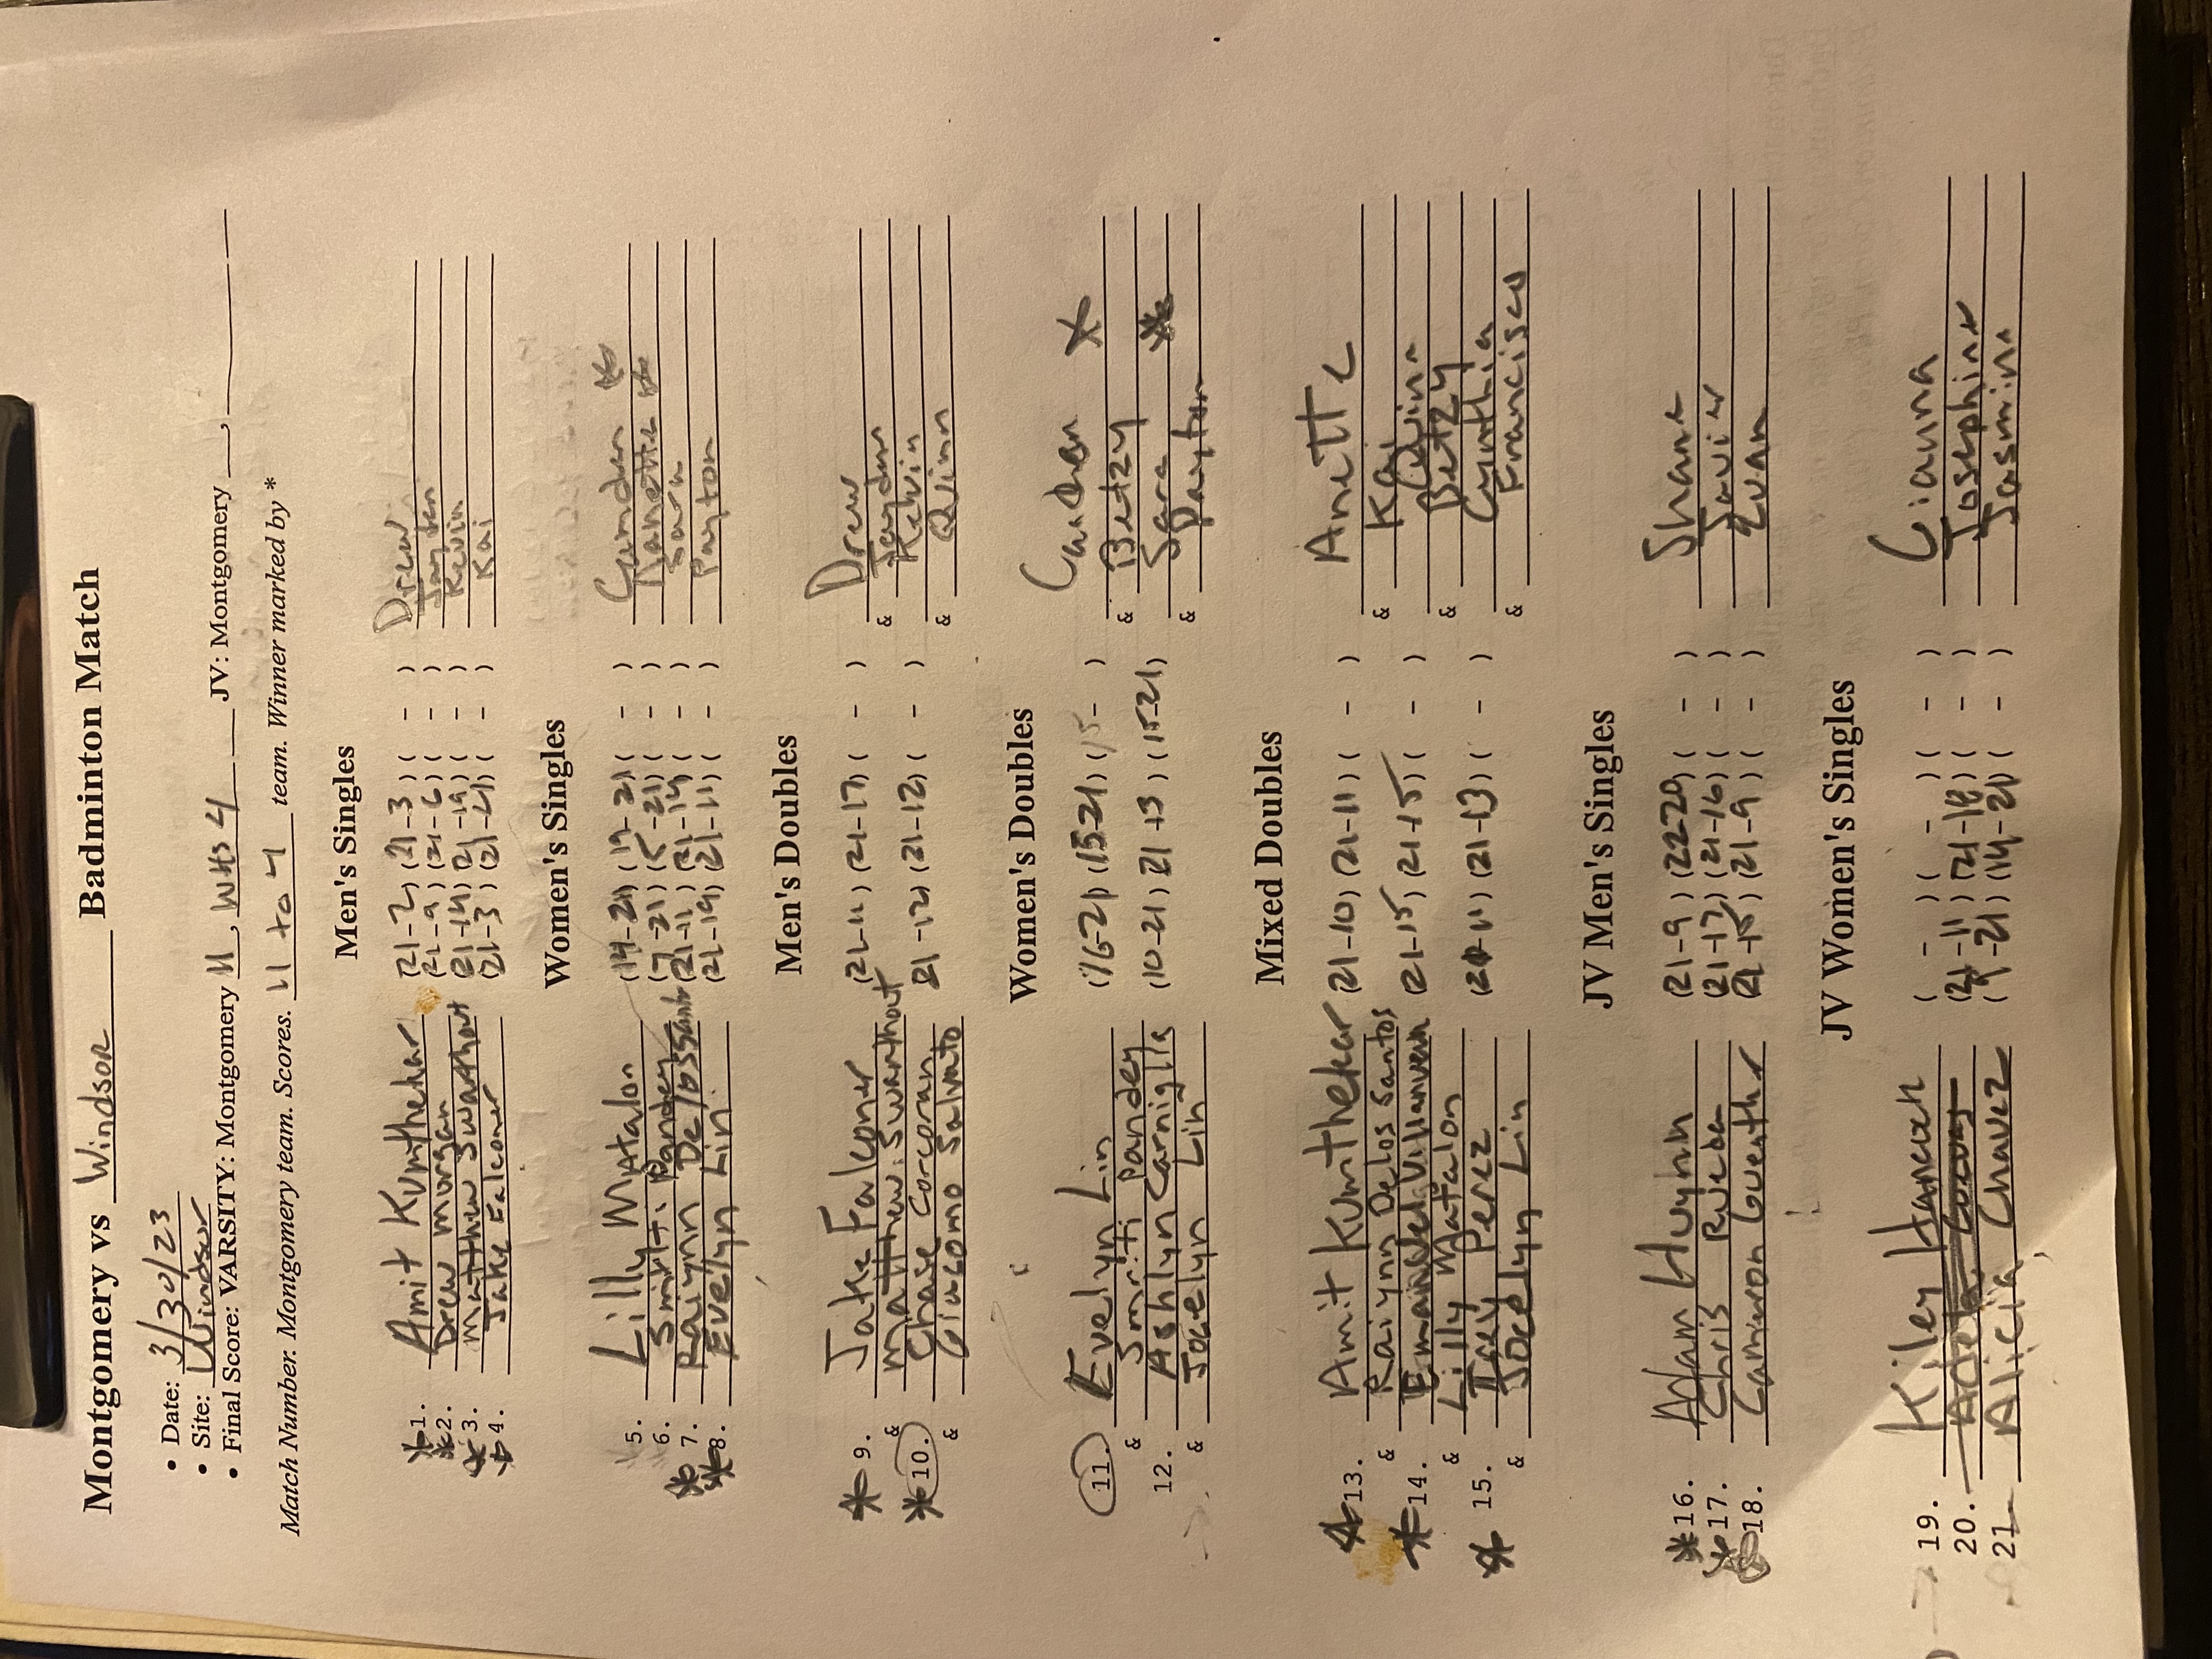 Montgomery vs Windsor Badminton Match
• Date: 3/30/23
• Site: Windsor
• Final Score: VARSITY: Montgomery 11, WHS 4 JV: Montgomery ___, ______
Match Number. Montgomery team. Scores. 11 to 4 team. Winner marked by *
Men's Singles
*1. Amit Kunthekar (21-2) (21-3) ( - ) Drew
*2. Drew Morgan (21-9) (21-6) ( - ) Jayden
*3. Matthew Swarthout (21-14) (21-19) ( - ) Kevin
*4. Jake Falconer (21-3) (21-4) ( - ) Kai
Women's Singles
5. Lilly Matalon (14-21) (19-21) ( - ) Camden *
6. Smriti Pandey (7-21) (5-21) ( - ) Nanette *
*7. Raiynn De los Santos (21-11) (21-14) ( - ) Sara
*8. Evelyn Lin (21-19) (21-11) ( - ) Payton
Men's Doubles
*9. Jake Falconer (21-11) (21-17) ( - ) Drew
& Matthew Swarthout & Jayden
*10. Chase Corcoran (21-12) (21-12) ( - ) Kelvin
& Giacomo Salvato & Quinn
Women's Doubles
11. Evelyn Lin (16-21) (15-21) (15- ) Camden *
& Smriti Pandey & Betzy
12. Ashlyn Carniglia (10-21) (21-13) (15-21) Sara *
& Jocelyn Lin & Payton
Mixed Doubles
*13. Amit Kunthekar (21-10) (21-11) ( - ) Anette
& Raiynn Delos Santos & Kai
*14. Emanuel Villanueva (21-15) (21-15) ( - ) Quinn
& Lilly Matalon & Betzy
*15. Joey Perez (21-11) (21-13) ( - ) Cynthia
& Jocelyn Lin & Francisco
JV Men's Singles
*16. Adam Huynh (21-9) (22-20) ( - ) Shane
*17. Chris (21-17) (21-16) ( - ) Javier
18. Cameron Guenther (21-15) (21-9) ( - ) Evan
JV Women's Singles
19. Kiley ( - ) ( - ) ( - ) Gianna
20. (21-11) (21-18) ( - ) Josephine
21 Alicia Chavez (9-21) (14-21) ( - ) Jasmine